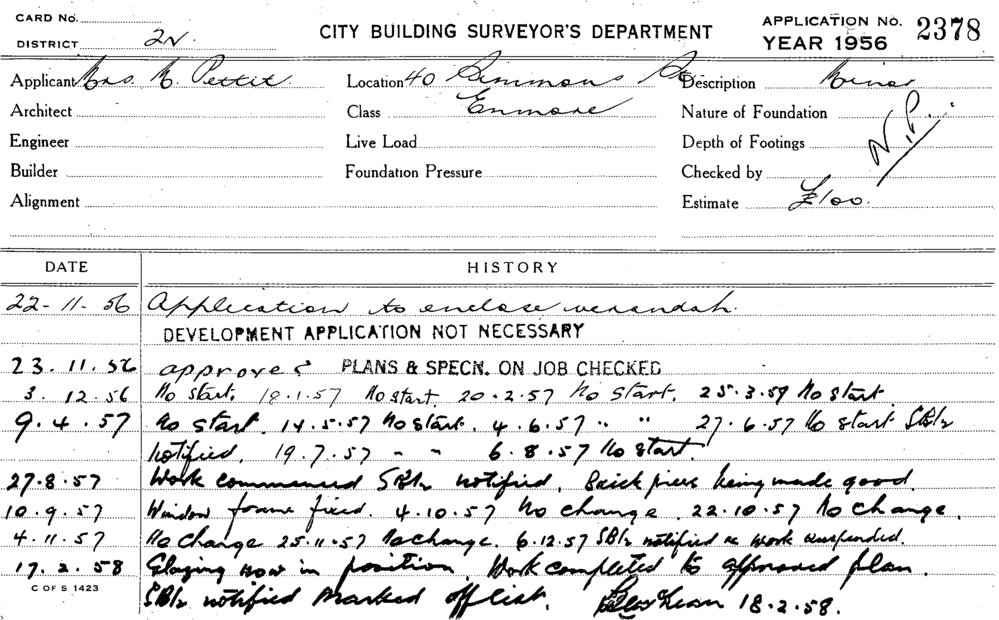 CARD No. CITY BUILDING SURVEYOR'S DEPARTMENT APPLICATION No. 2378
DISTRICT 2N. YEAR 1956
Applicant Mrs. M. Pettit Location 40 Simmons St Description Minor
Architect Class Enmore Nature of Foundation
Engineer Live Load Depth of Footings N.P.
Builder Foundation Pressure Checked by
Alignment Estimate £100.
DATE HISTORY
22-11-56 Application to enclose verandah.
DEVELOPMENT APPLICATION NOT NECESSARY
23.11.56 approved PLANS & SPECN. ON JOB CHECKED
3.12.56 No start. 18.1.57 No start 20.2.57 No start. 25.3.57 No start
9.4.57 No start. 14.5.57 No start. 4.6.57 " " 27.6.57 No start SBI2
notified. 19.7.57 " " 6.8.57 No start.
27.8.57 Work commenced notified. Brick piers being made good.
10.9.57 Window frame fixed. 4.10.57 No change. 22.10.57 No change.
4.11.57 No change 25.11.57 No change. 6.12.57 notified re work suspended.
17.2.58 Glazing now in position. Work completed to approved plan.
C OF S 1423
notified Marked off list. 18.2.58.